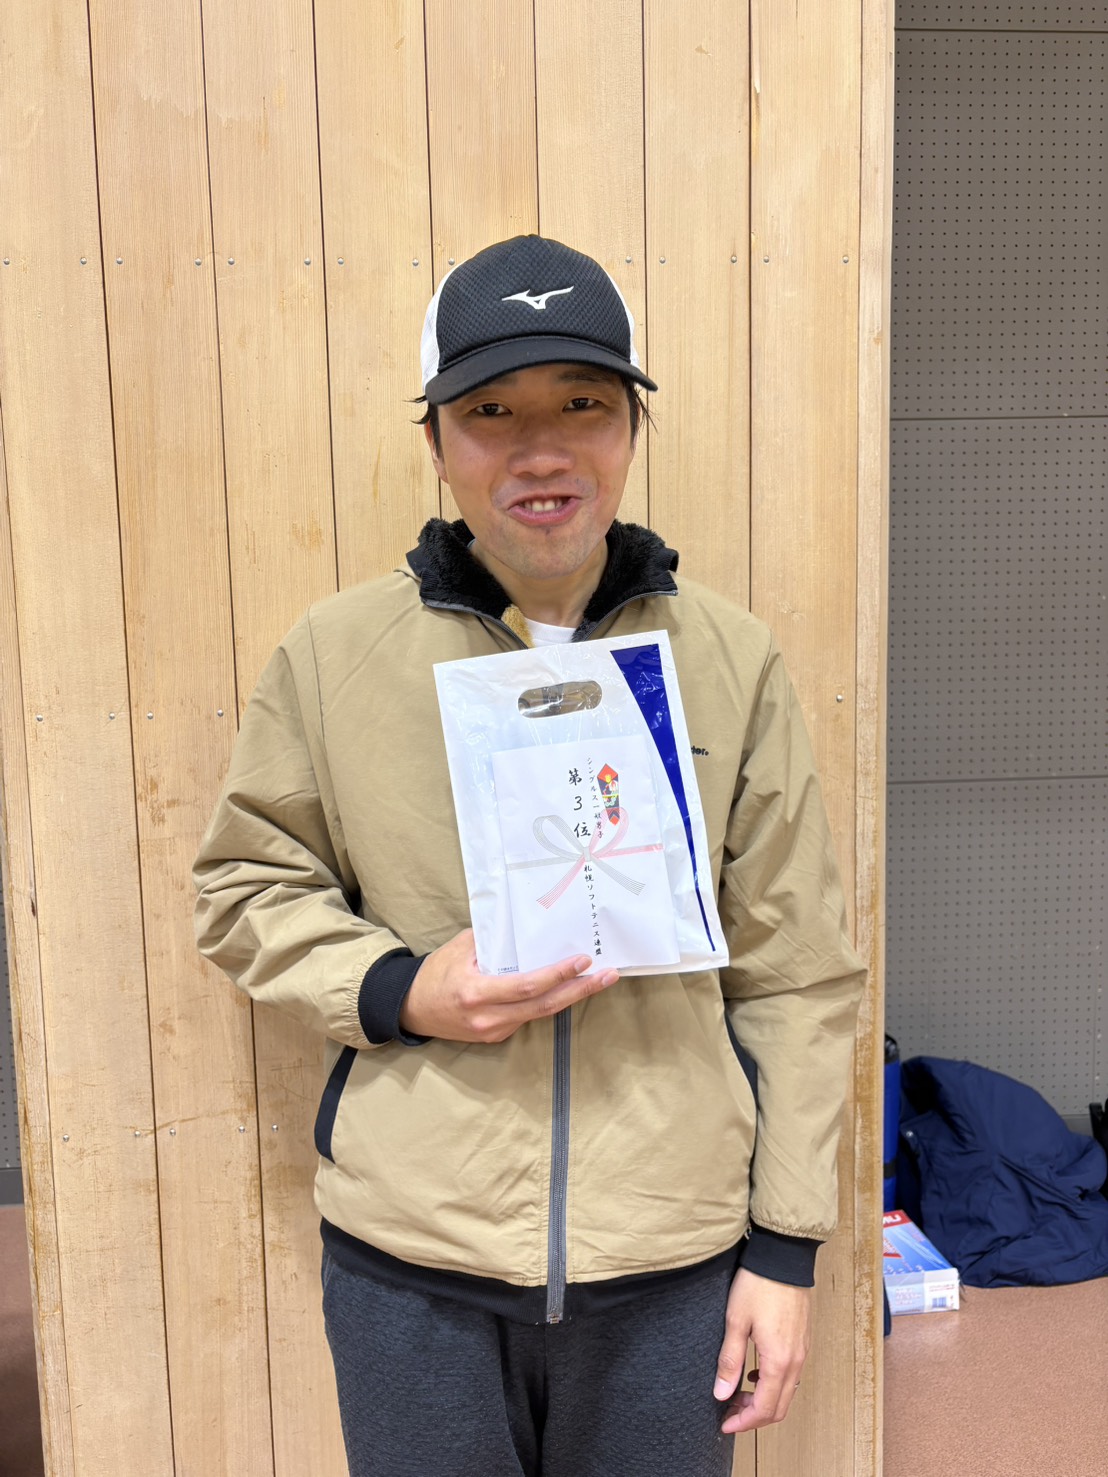 シングルス一般男子
第3位
札幌ソフトテニス連盟
der.